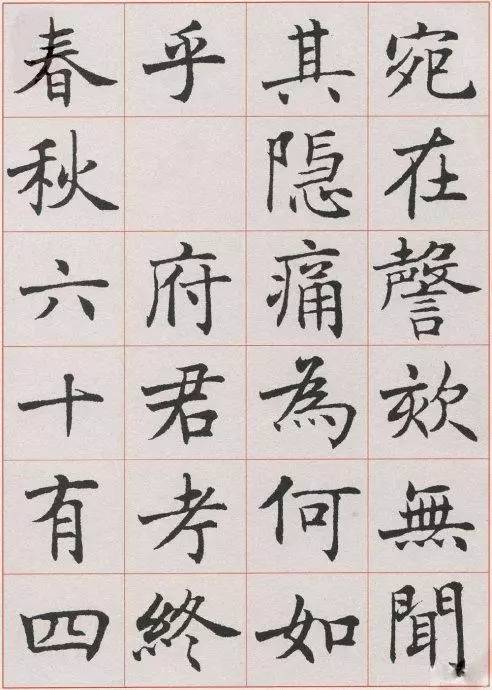 宛在謦欬無聞
其隐痛為何如
乎 府君考終
春秋六十有四